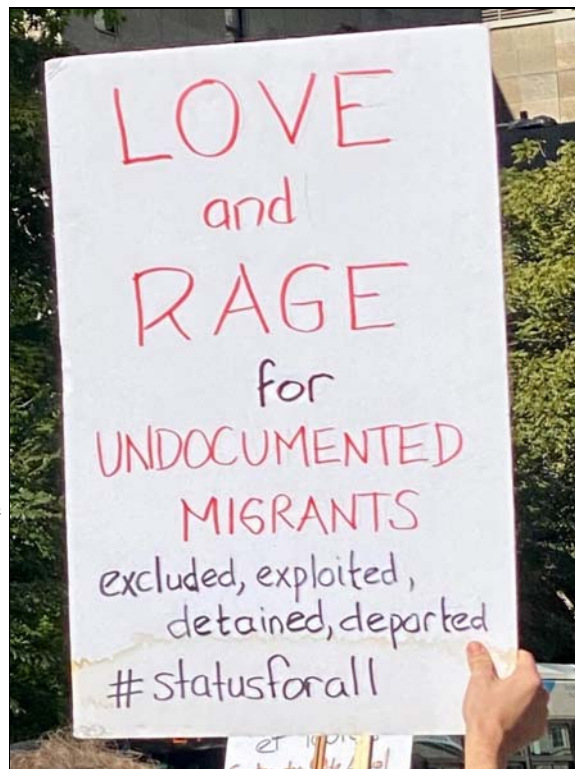 LOVE
and
RAGE
for
UNDOCUMENTED
MIGRANTS
excluded, exploited,
detained, deported
#statusforall
et